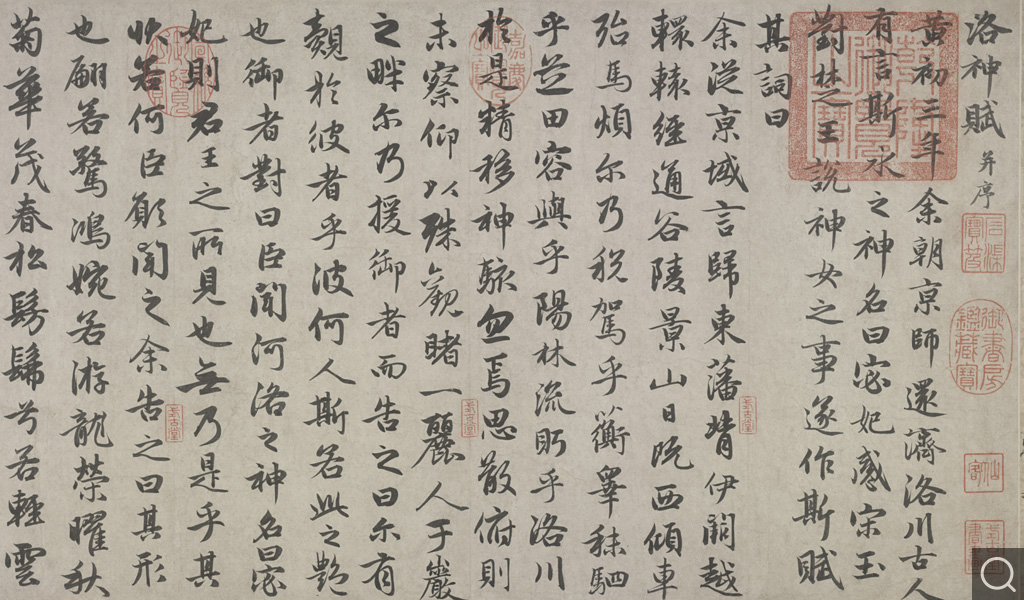 洛神賦 并序
黃初三年余朝京師還濟洛川古人
有言斯水之神名曰宓妃感宋玉
對楚王說神女之事遂作斯賦
其詞曰
余從京域言歸東藩背伊闕越
轘轅經通谷陵景山日既西傾車
殆馬煩尔乃稅駕乎蘅皋秣駟
乎芝田容與乎陽林流眄乎洛川
於是精移神駭忽焉思散俯則
未察仰以殊觀睹一麗人于巖
之畔尔乃援御者而告之曰尔有
覿於彼者乎彼何人斯若此之艷
也御者對曰臣聞河洛之神名曰宓
妃則君王之所見也無乃是乎其
狀若何臣願聞之余告之曰其形
也翩若驚鴻婉若游龍榮曜秋
菊華茂春松髣髴兮若輕雲
御書房鑑藏寶